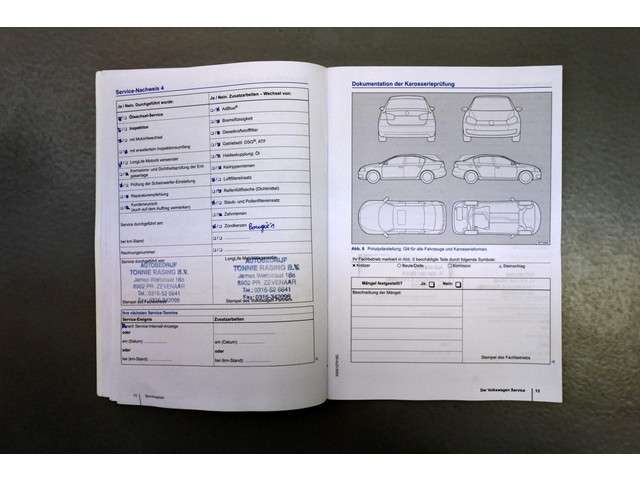 Service-Nachweis 4
Ja / Nein: Durchgeführt wurde:
Ölwechsel-Service
Inspektion
mit Motorölwechsel
mit erweitertem Inspektionsumfang
LongLife Motoröl verwendet
Prüfung der Scheinwerfer-Einstellung
Reparaturempfehlung
(auch auf dem Auftrag vermerken)
Service durchgeführt am:
bei km-Stand:
Rechnungsnummer:
Service durchgeführt
Ja / Nein: Zusatzarbeiten – Wechsel von:
AdBlue®
Bremsflüssigkeit
Dieselkraftstofffilter
Getriebeöl: DSG®, ATF
Haldexkupplung: Öl
Keilrippenriemen
Luftfiltereinsatz
Reifenfüllflasche (Dichtmittel)
Staub- und Pollenfiltereinsatz
Zahnriemen
Zündkerzen Bougie's
AUTOBEDRIJF
TONNIE RASING B.V.
James Wattstraat 16a
6902 PR ZEVENAAR
Tel.: 0316-52 6641
Fax: 0316-342098
AUTOBEDRIJF
TONNIE RASING B.V.
James Wattstraat 16a
6902 PR ZEVENAAR
Tel.: 0316-52 6641
Fax: 0316-342098
Ihre nächsten Service-Termine
Service-Ereignis
Zusatzarbeiten
Gemäß Service-Intervall-Anzeige
oder
am (Datum)
oder
bei (km-Stand)
am (Datum)
oder
bei (km-Stand)
12
Serviceplan
Dokumentation der Karosserieprüfung
Abb. 5 Prinzipdarstellung: Gilt für alle Fahrzeuge und Karosserieformen
Ihr Fachbetrieb markiert in Abb. 5 beschädigte Teile durch folgende Symbole:
Kratzer
Beule/Delle
Korrosion
Steinschlag
Mängel festgestellt?
Ja:
Nein:
Beschreibung der Mängel:
Stempel des Fachbetriebs
Der Volkswagen Service
13